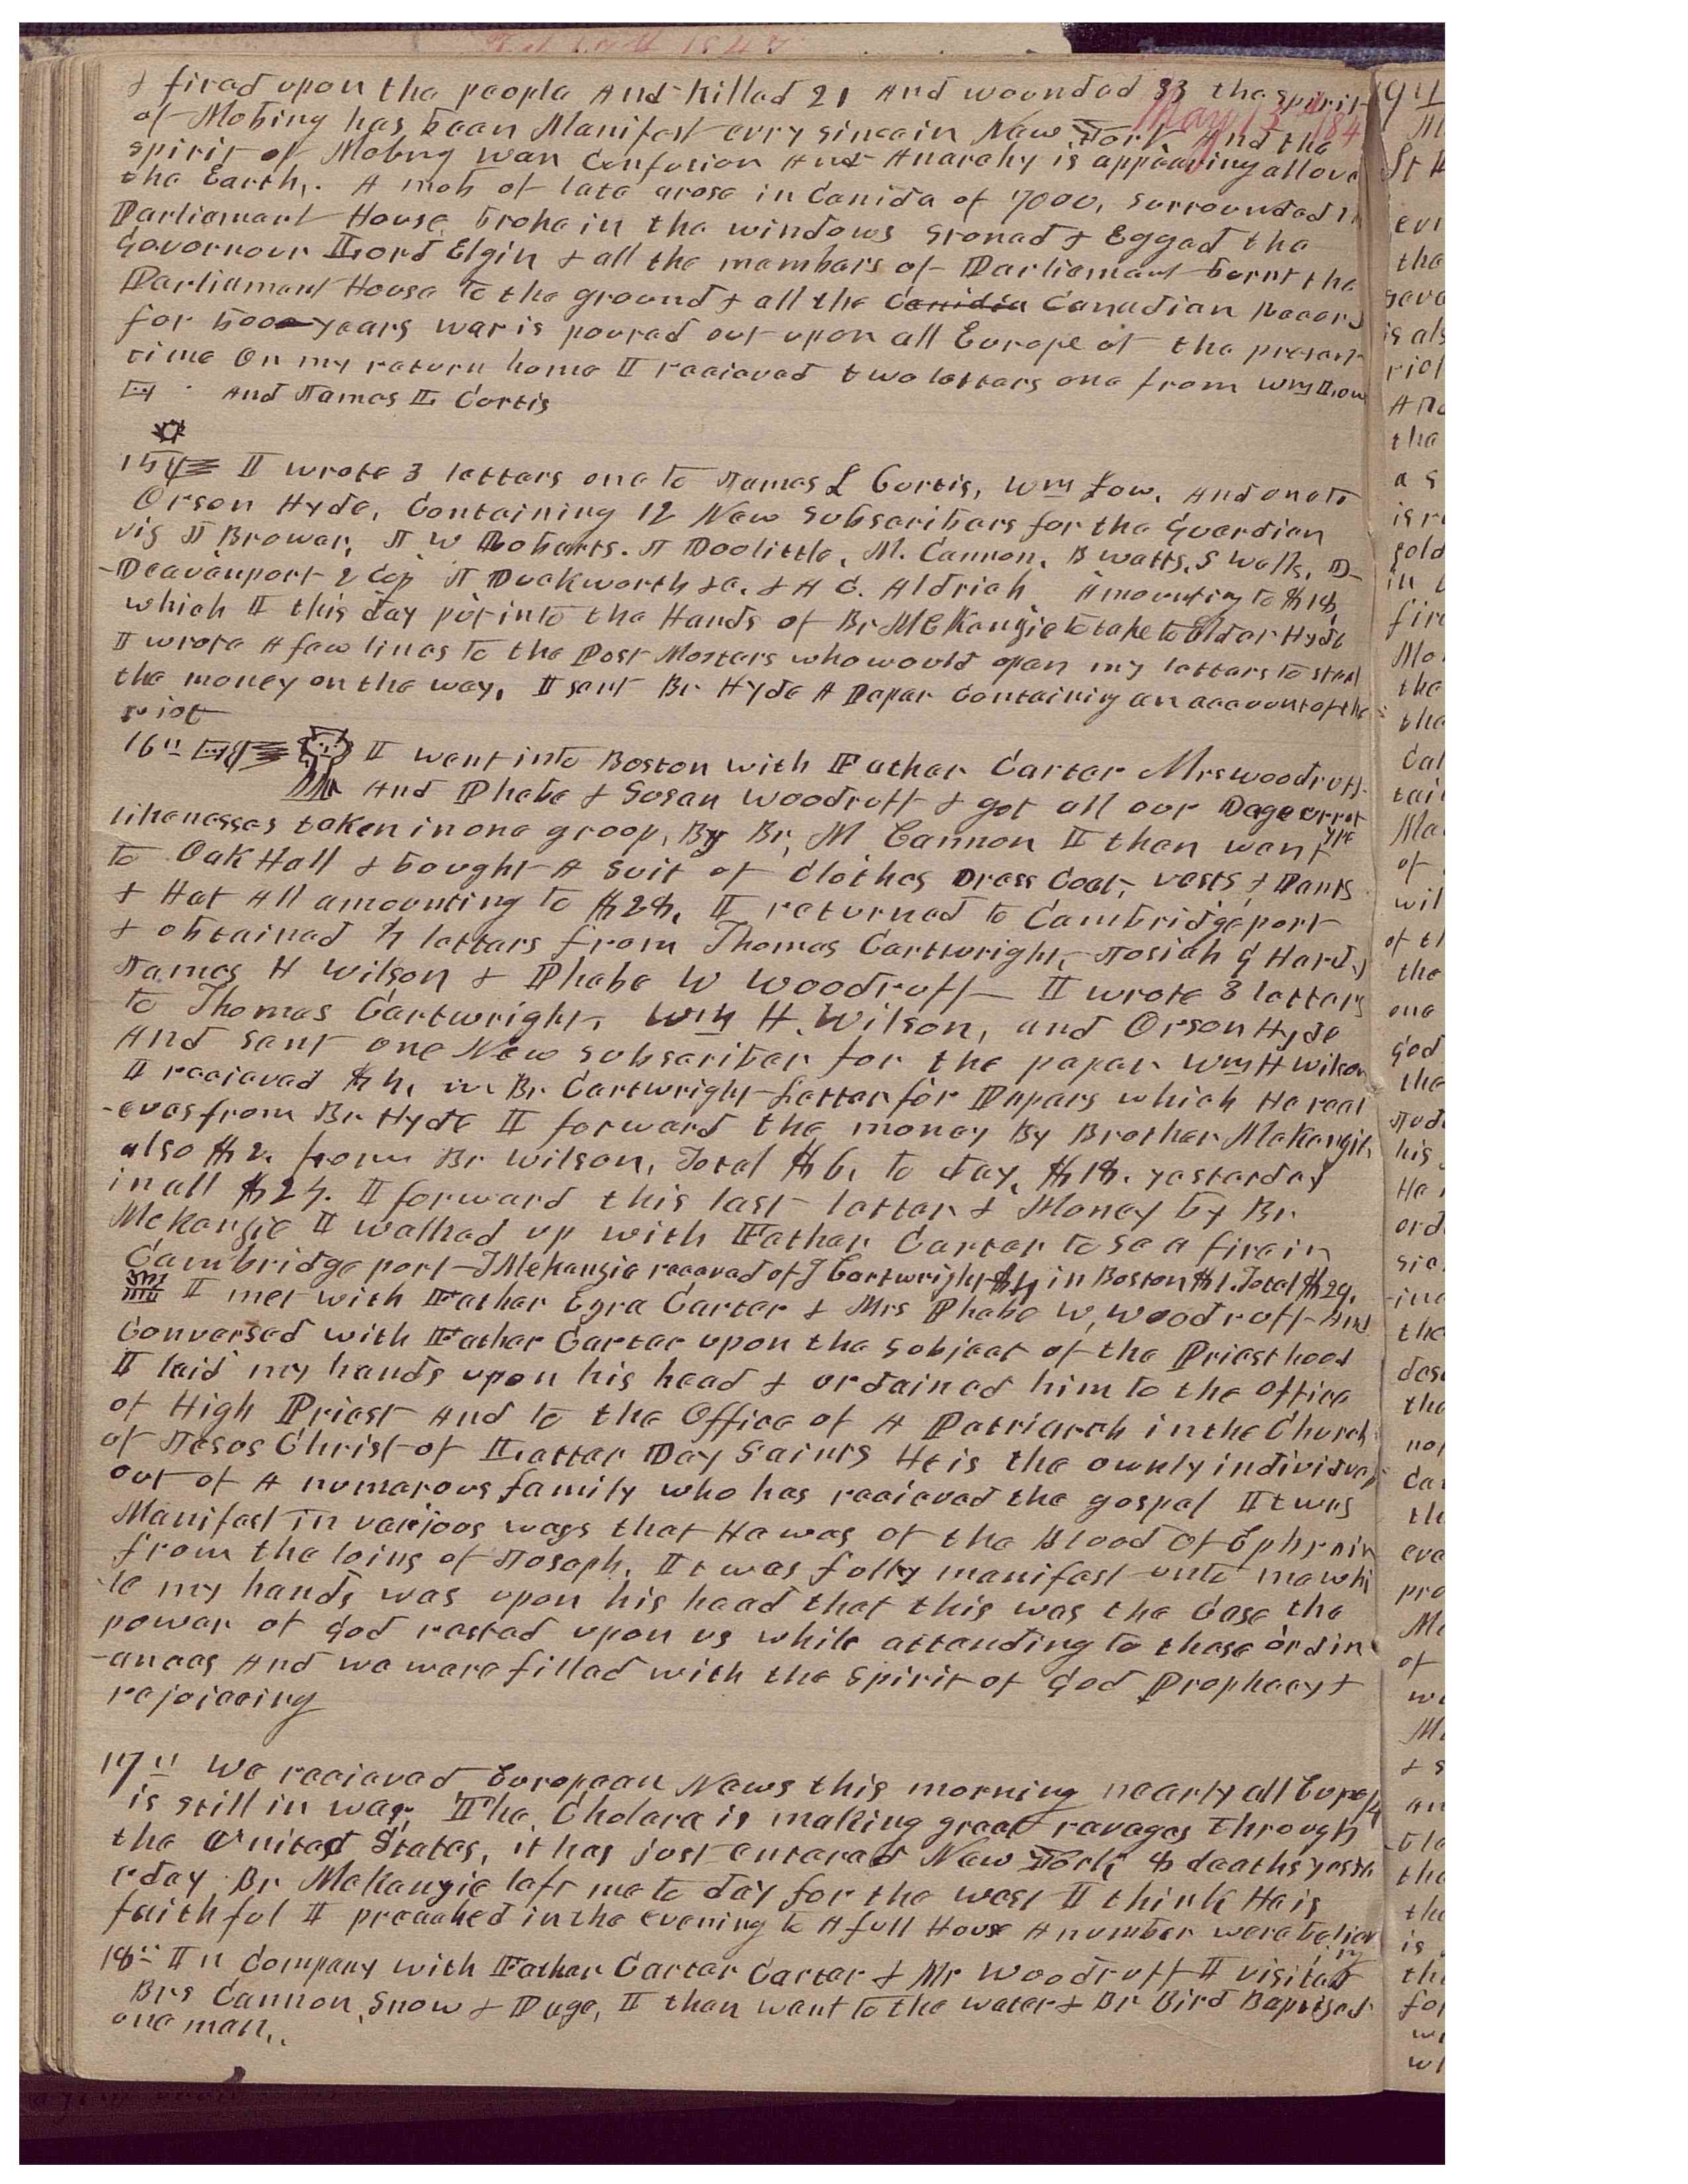 & fired upon the people And killed 21 And wounded 33 the spirit
May 13th 184
of Mobing has been Manifest evry since in New York And the
spirit of Mobing war Confusion And Anarchy is appearing all over
the Earth,. A mob of late arose in Canida of 7000, surrounded the
Parliament House broke in the windows Stoned & Egged the
Governour Lord Elgin & all the members of Parliament burnt the
Parliament House to the ground & all the Canidia Canadian Record
for 500 years war is poured out upon all Europe at the present
time On my return home I received two letters one from Wm Low
And James L Curtis
15th I wrote 3 letters one to James L Curtis, Wm Low, And one to
Orson Hyde, Containing 12 New Subscribers for the Guardian
vis J Brower, J W Roberts. J Doolittle, M. Cannon, B Watts, S Wells, D-
-Deavenport 2 Cop J Duckworth &c. & A C. Aldrich Amounting to $18,
which I this day put into the Hands of Br McKenzie to take to Elder Hyde
I wrote A few lines to the Post Masters who would open my letters to steal
the money on the way, I sent Br Hyde A Paper Containing an account of the
riot
16th I went into Boston with Father Carter Mrs Woodruff
And Phebe & Susan Woodruff & got all our Dagueerrotype
likenesses taken in one groop, By Br, M Cannon I then went
to Oak Hall & bought A suit of Clothes Dress Coat, vests, & Pants
& Hat All amounting to $28, I returned to Cambridgeport
& obtained 4 letters from Thomas Cartwright, Josiah G Hardy
James H Wilson & Phebe W Woodruff I wrote 3 letters
to Thomas Cartwright, Wm H. Wilson, and Orson Hyde
And sent one New subscriber for the paper Wm H Wilson
I received $4, in Br Cartwright Letter for Papers which He rece
-eves from Br Hyde I forward the money By Brother McKenzie,
also $2. from Br Wilson, Total $6, to day, $18. yesterday
in all $24. I forward this last letter & Money by Br
McKenzie I walked up with Father Carter to se a fire in
Cambridgeport J McKenzie receved of J Cartwright $4 in Boston $1. Total $29.
I met with Father Ezra Carter & Mrs Phebe W, Woodruff And
Conversed with Father Carter upon the subject of the Priesthood
I laid my hands upon his head & ordained him to the office
of High Priest And to the Office of A Patriarch in the Church
of Jesus Christ of Latter Day Saints He is the ownly individual
out of A numerous family who has received the gospel It was
Manifest in varioos ways that He was of the Blood Of Ephraim
from the loins of Joseph. It was fully manifest unto me whi
-le my hands was upon his head that this was the Case the
power of God rested upon us while attending to these ordin
-ances And we were filled with the Spirit of God Prophecy &
rejoiceing
17th We received European News this morning nearly all Europe
is still in war, The Cholera is making great ravages through
the United States, it has just entered New York, 8 deaths yeste
rday Br McKenzie left me to day for the west I think He is
faithful I preached in the evening to A full House A number were believing
18th In Company with Father Carter Carter & Mr Woodruff I visited
Brs Cannon, Snow & Page, I then went to the water & Br Bird Baptized
one man,.